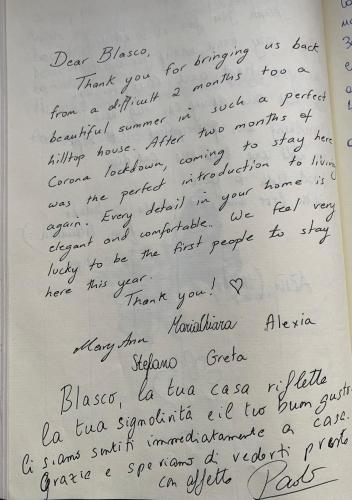 Dear Blasco,
Thank you for bringing us back
from a difficult 2 months too a
beautiful summer in such a perfect
hilltop house. After two months of
Corona lockdown, coming to stay here
was the perfect introduction to living
again. Every detail in your home is
elegant and comfortable. We feel very
lucky to be the first people to stay
here this year.
Thank you! ♡
Mary Ann MariaChiara Alexia
Stefano Greta
Blasco, la tua casa riflette
la tua signolirità e il tuo buon gusto.
Ci siamo sentiti immediatamente a casa.
Grazie e speriamo di vederti presto
con affetto Paolo